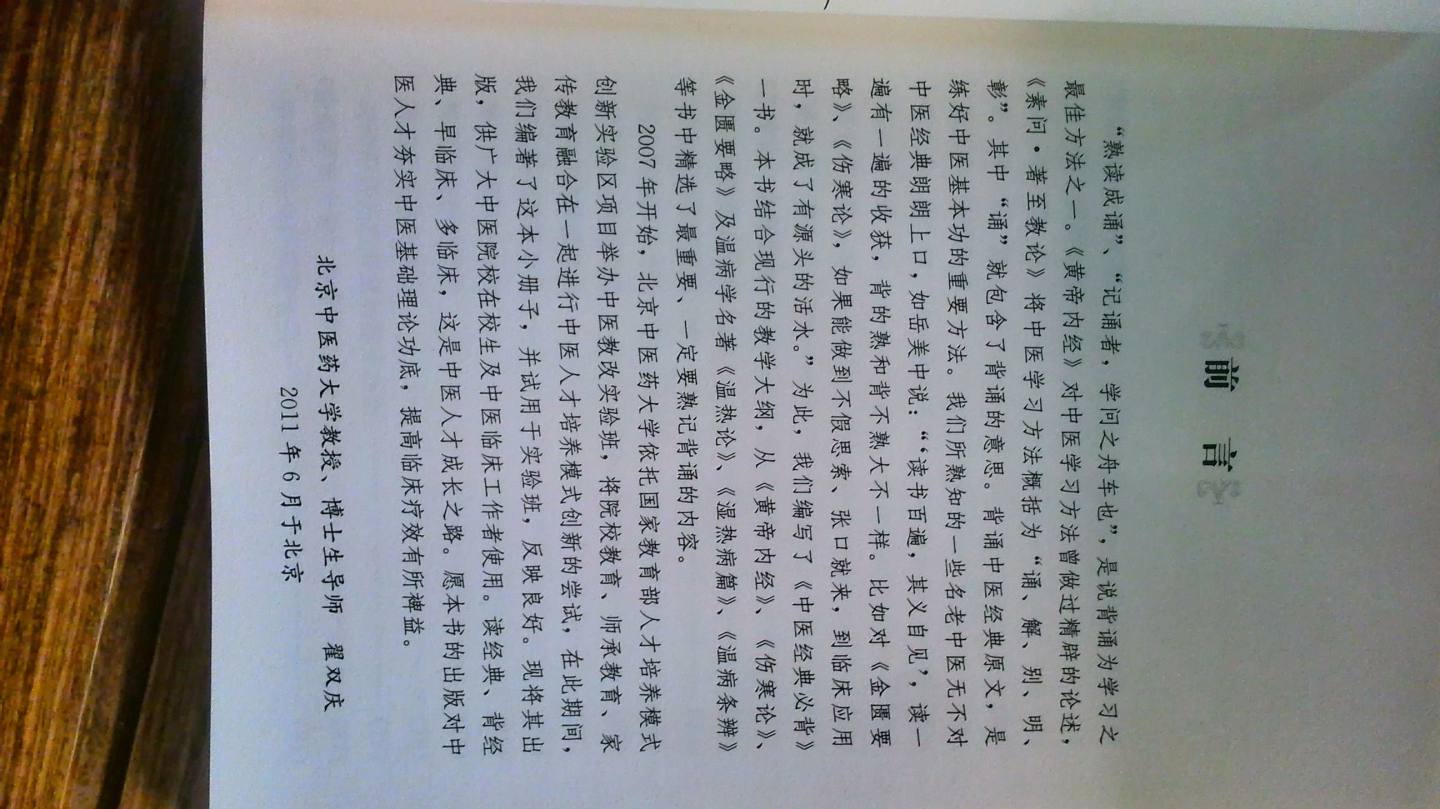 前 言
“熟读成诵”、“记诵者，学问之舟车也”，是说背诵为学习之
最佳方法之一。《黄帝内经》对中医学习方法曾做过精辟的论述，
《素问·著至教论》将中医学习方法概括为“诵、解、别、明、
彰”。其中“诵”就包含了背诵的意思。背诵中医经典原文，是
练好中医基本功的重要方法。我们所熟知的一些名老中医无不对
中医经典朗朗上口，如岳美中说：“‘读书百遍，其义自见’，读一
遍有一遍的收获，背的熟和背不熟大不一样。比如对《金匮要
略》、《伤寒论》，如果能做到不假思索、张口就来，到临床应用
时，就成了有源头的活水。”为此，我们编写了《中医经典必背》
一书。本书结合现行的教学大纲，从《黄帝内经》、《伤寒论》、
《金匮要略》及温病学名著《温热论》、《湿热病篇》、《温病条辨》
等书中精选了最重要、一定要熟记背诵的内容。
2007年开始，北京中医药大学依托国家教育部人才培养模式
创新实验区项目举办中医教改实验班，将院校教育、师承教育、家
传教育融合在一起进行中医人才培养模式创新的尝试，在此期间，
我们编著了这本小册子，并试用于实验班，反映良好。现将其出
版，供广大中医院校在校生及中医临床工作者使用。读经典、背经
典、早临床、多临床，这是中医人才成长之路。愿本书的出版对中
医人才夯实中医基础理论功底，提高临床疗效有所裨益。
北京中医药大学教授、博士生导师 翟双庆
2011年6月于北京